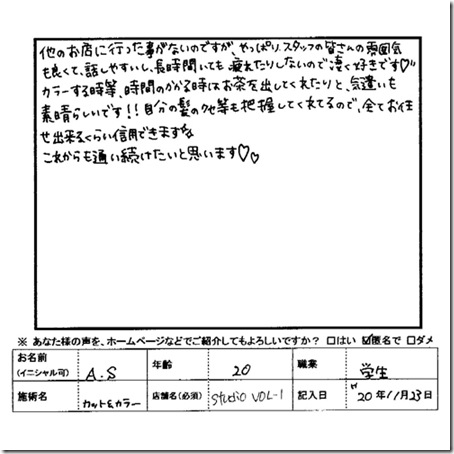 他のお店に行った事がないのですが、やっぱりスタッフの皆さんの雰囲気
も良くて、話しやすいし、長時間いても疲れたりしないので凄く好きです♡
カラーする時等、時間のかかる時はお茶を出してくれたりと、気遣いも
素晴らしいです!!自分の髪のクセ等も把握してくれてるので、全てお任
せ出来るくらい信用できます☆
これからも通い続けたいと思います♡♡
※ あなた様の声を、ホームページなどでご紹介してもよろしいですか? □はい ☑匿名で □ダメ
お名前 (イニシャル可) A.S 年齢 20 職業 学生
施術名 カット&カラー 店舗名(必須) studio VOL-1 記入日 H20年11月23日